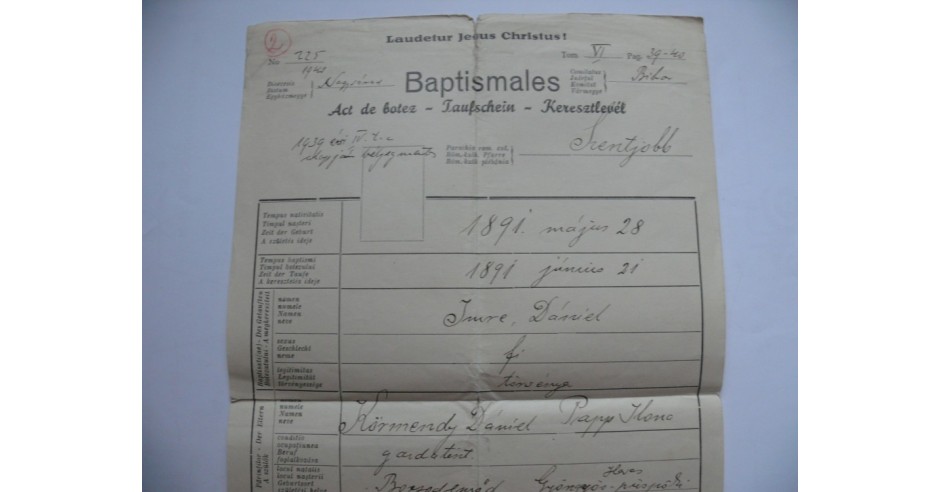 2
Laudetur Jesus Christus!
No 225
1940
Tom. VI Pag. 39-40
Dioecesis
Nagyvárad
Egyházmegye
Baptismales
Comitatus
Judeţul
Komitat
Vármegye
Bihar
Act de botez – Taufschein – Keresztlevél
1939 évi IV. t.-c.
alapján bélyegmentes
Parochia rom. cat.
Röm. kath. Pfarre
Róm. kath. plébánia
Szentjobb
Tempus nativitatis
Timpul naşterii
Zeit der Geburt
A születés ideje
1891. május 28
Tempus baptismi
Timpul botezului
Zeit der Taufe
A keresztelés ideje
1891 június 21
nomen
numele
Namen
neve
Imre, Dániel
sexus
Geschlecht
neme
fi
legitimitas
Legitimität
törvényessége
törvényes
numele
Namen
neve
Körmendy Dániel Papp Ilona
conditio
ocupaţiunea
Beruf
foglalkozása
locul naşterii
Geburtsort
születési helye
Heves
Gyöngyös-püspöki